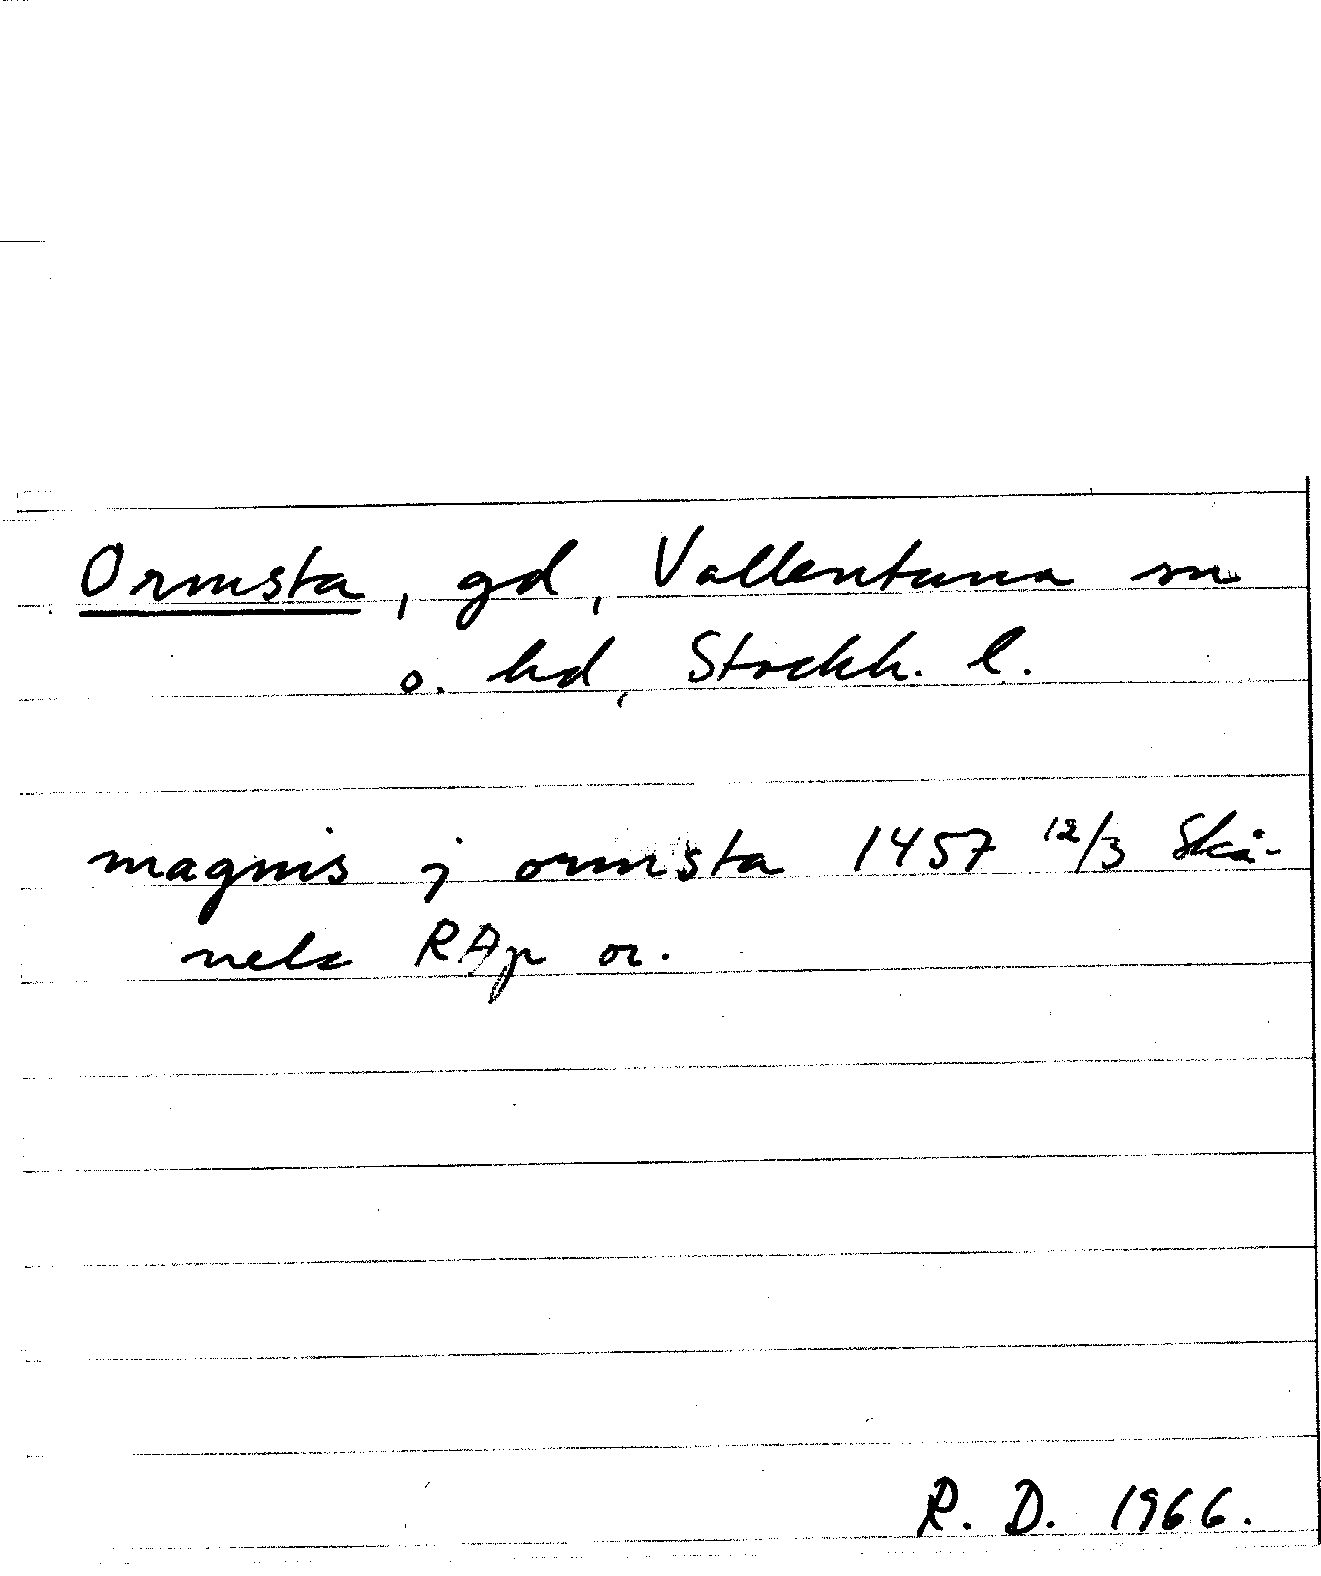 Ormsta, gd, Vallentuna sn
o. hd, Stockh. l.
magnis j ormsta 1457 12/3 Skå-
nela RAp or.
R. D. 1966.